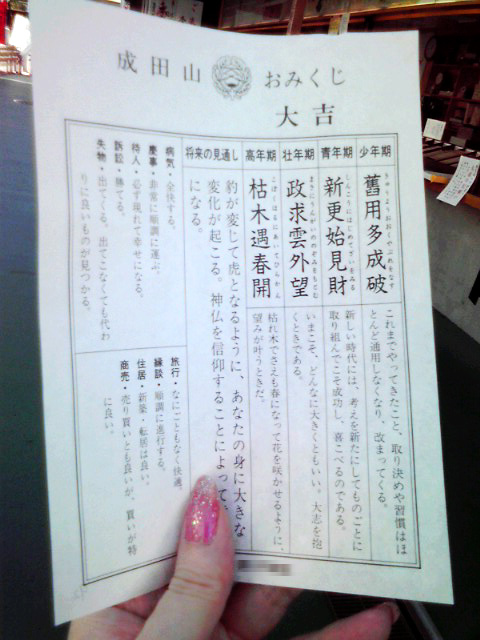 成田山 おみくじ
大吉
少年期
舊用多成破
きゅうようおおくやぶれをなす
これまでやってきたこと、取り決めや習慣はほ
とんど通用しなくなり、改まってくる。
青年期
新更始見財
新しい時代には、考えを新たにしてものごとに
取り組んでこそ成功し、喜こべるのである。
壮年期
政求雲外望
いまこそ、どんなに大きくともいい。大志を抱
くときである。
高年期
枯木遇春開
枯れ木でさえも春になって花を咲かせるように、
望みが叶うときだ。
将来の見通し
豹が変じて虎となるように、あなたの身に大きな
変化が起こる。神仏を信仰することによって
になる。
病気・全快する。
慶事・非常に順調に運ぶ。
待人・必ず現れて幸せになる。
訴訟・勝てる。
失物・出てくる。出てこなくても代わ
りに良いものが見つかる。
旅行・なにごともなく快適。
縁談・順調に進行する。
住居・新築・転居は良い。
商売・売り買いとも良いが、買いが特
に良い。